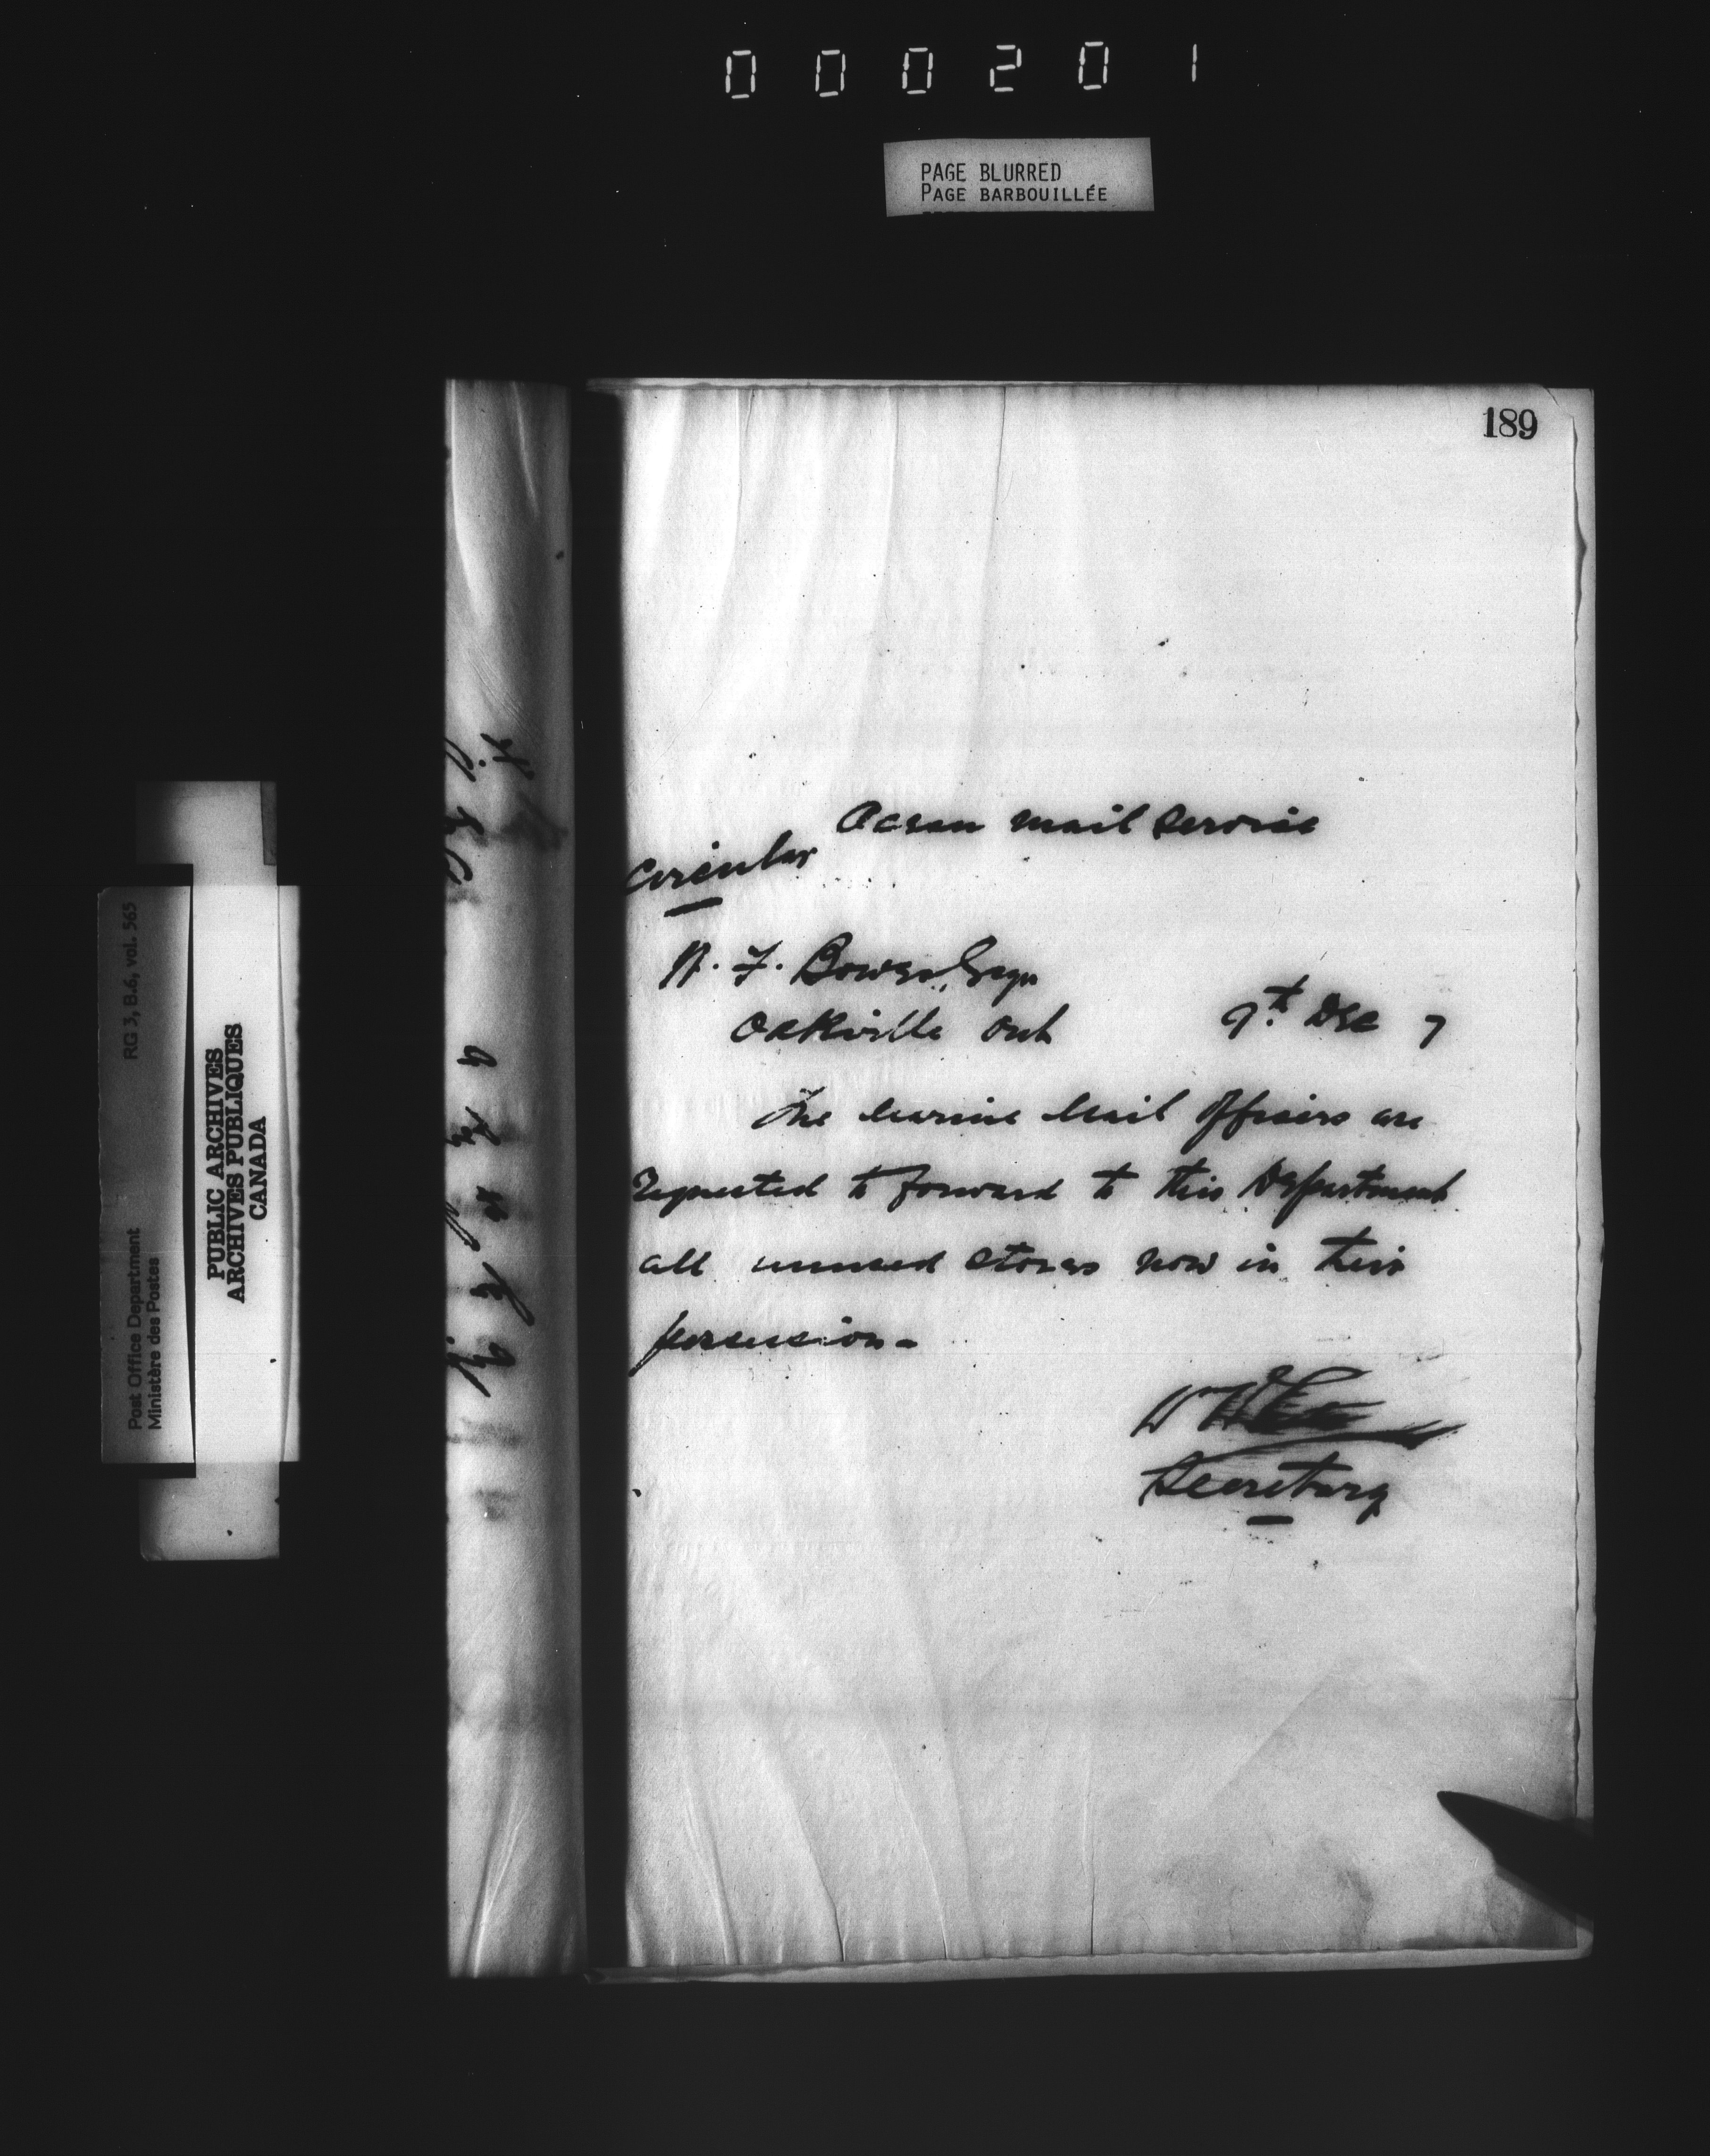 000201
PAGE BLURRED
PAGE BARBOUILLÉE
189
Ocean mail service
Circular
F. Bowes, Esqr
Oakville Ont 9th Dec 7
The Marine Mail Officers are
requested to forward to this Department
all unused stores now in their
possession -
Secretary
RG 3, B.6, vol. 565
Post Office Department
Ministère des Postes
PUBLIC ARCHIVES
ARCHIVES PUBLIQUES
CANADA